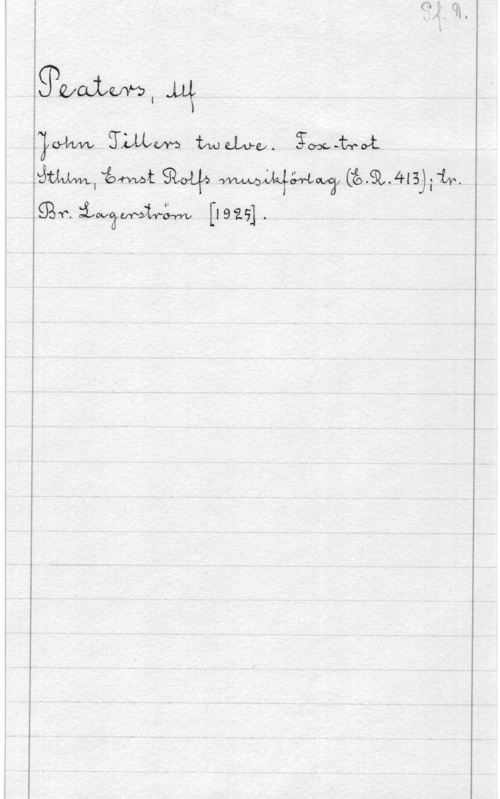 Sf. A.
Peaters, Ulf
John Tillers twelve. Fox-trot
Sthlm, Ernst Rolfs musikförlag (E.R. 413); tr.
Br. Lagerström [1925].